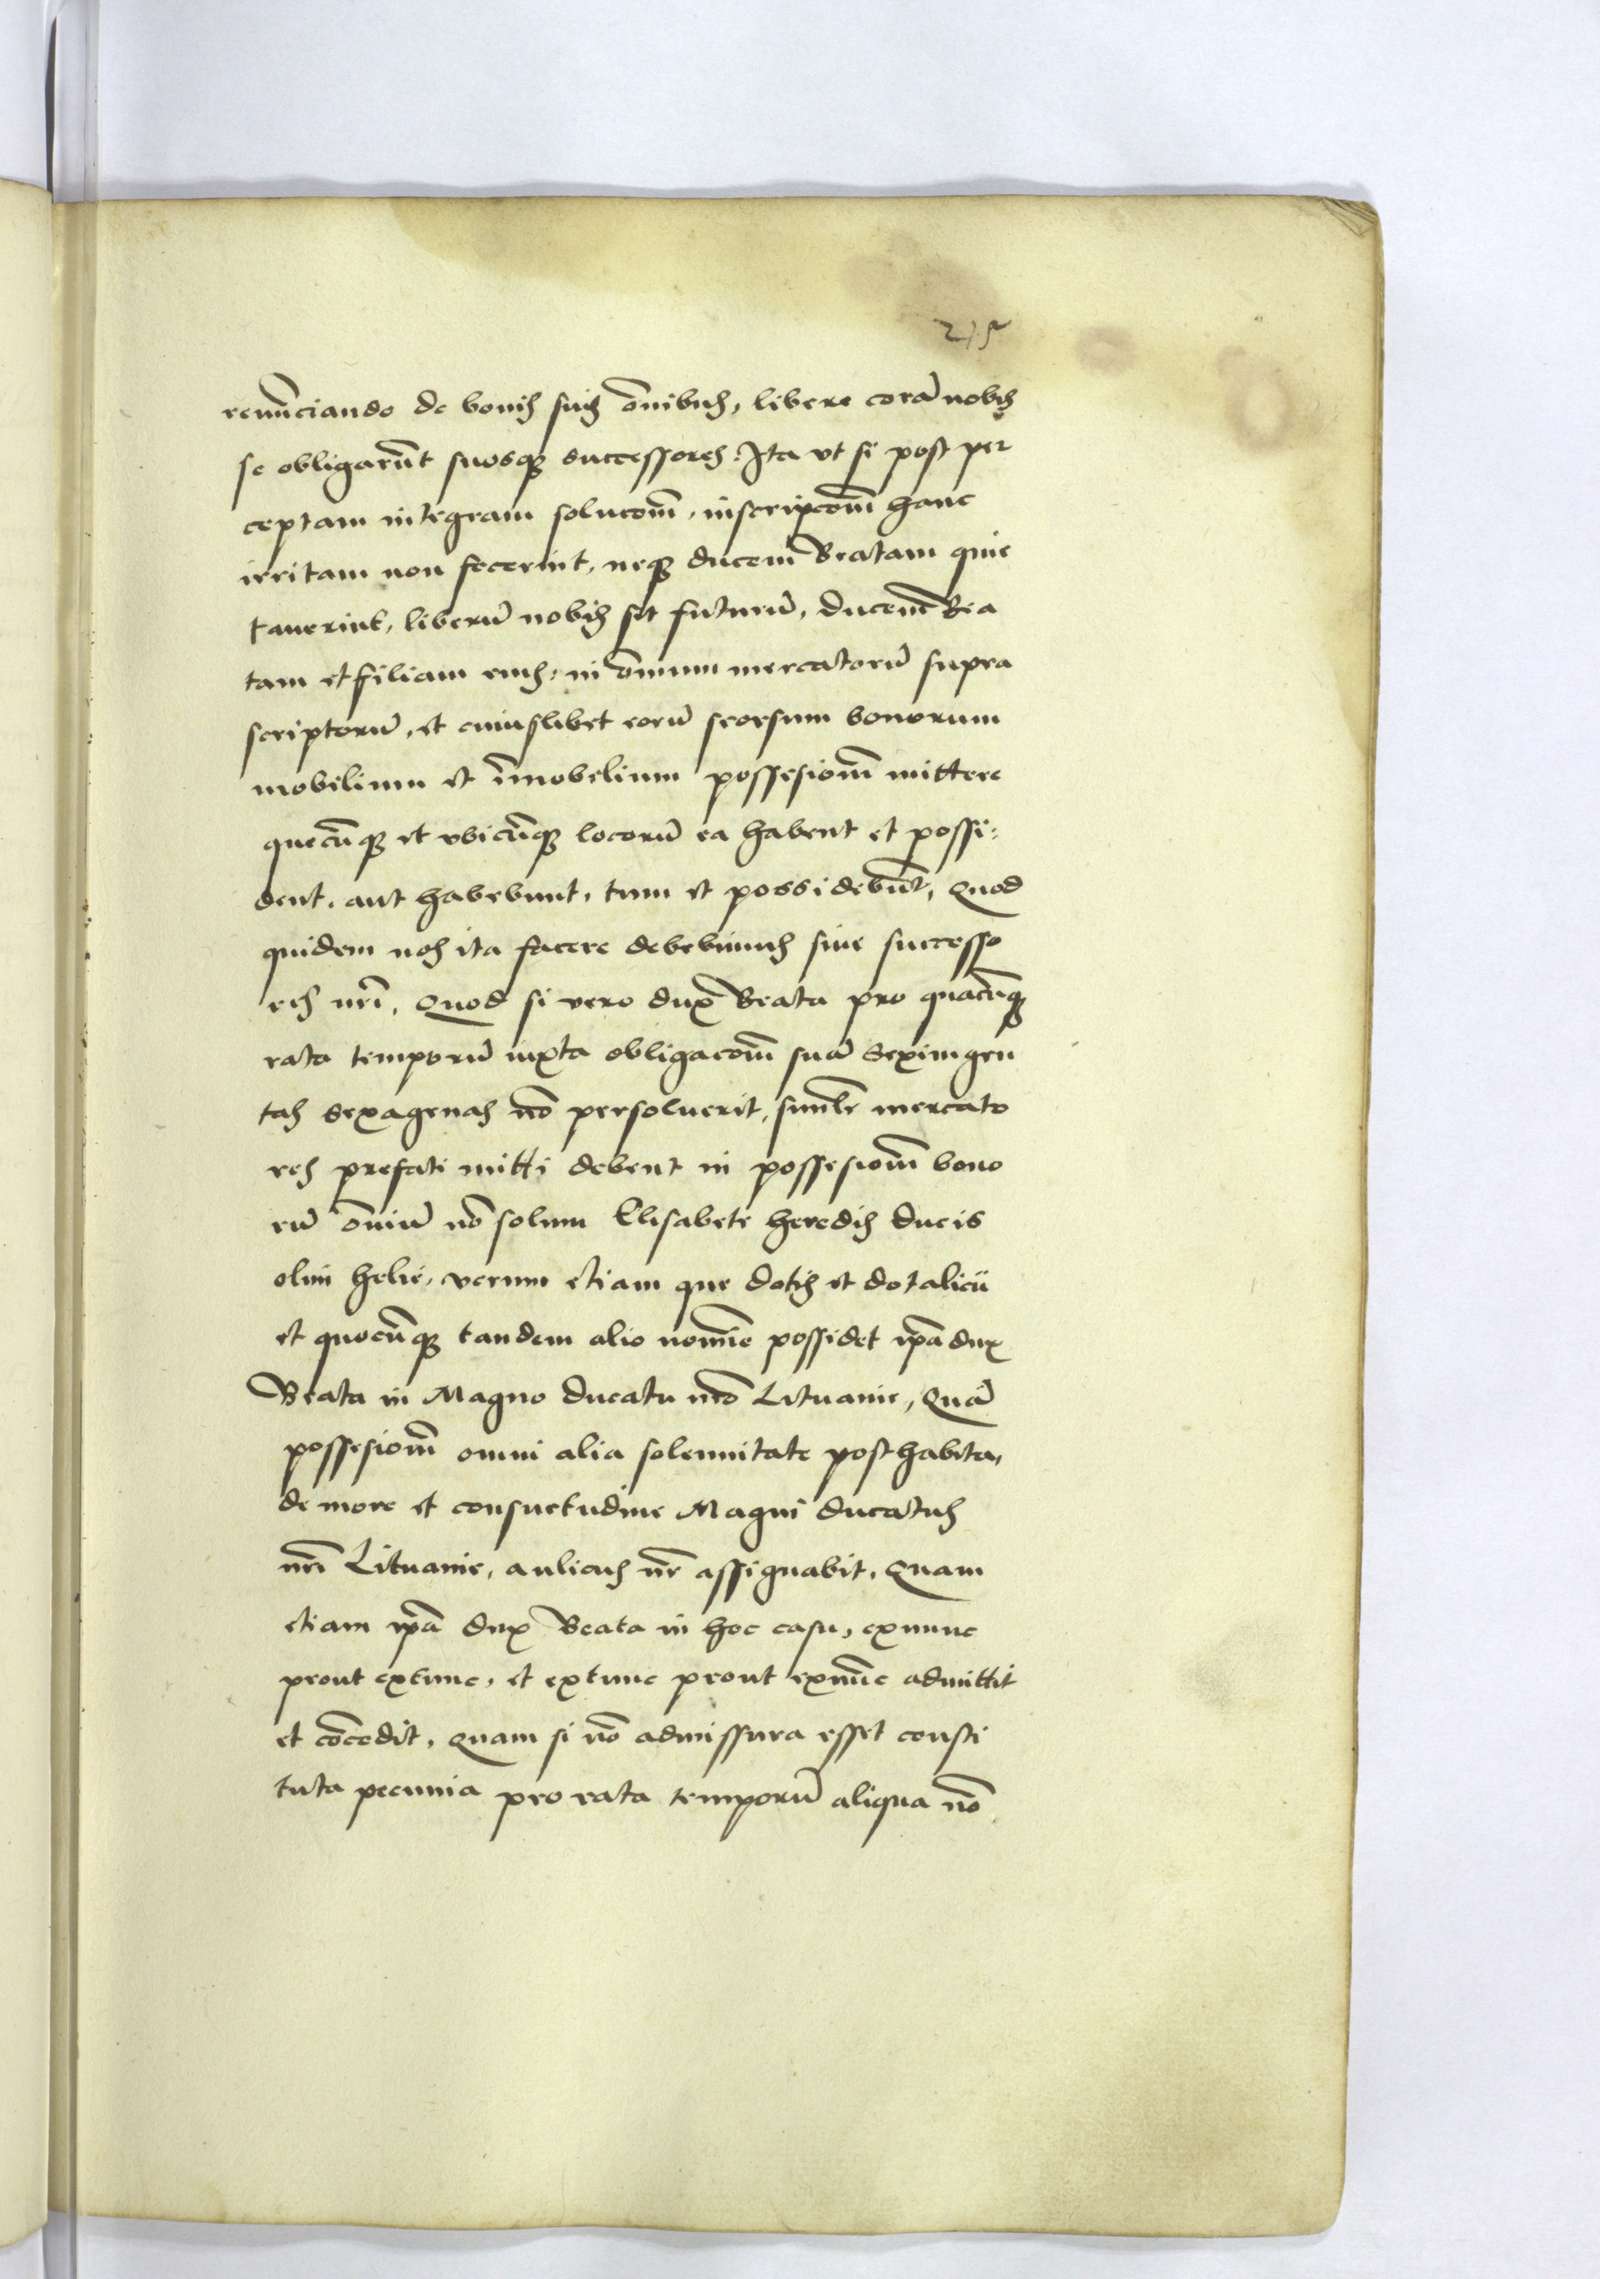 275
renūciando de bonis suis ōnibus, libere corā nobis
se obligarūt suosq; successores. Ita vt si post per
ceptam integram solucōm̄, inscripcōm̄ hanc
irritam non fecerint, neq; ducem Beatam quie
tauerint, liberū nobis sit futurū, ducem̄ Bea
tam et filiam eius, in ōmnium mercatorū supra
scriptorū, et cuiuslibet eorū seorsum bonorum
mobilium et īmobilium possesiom̄ mittere
quecūq; et vbicūq; locorū ea habent et possi:
dent, aut habebunt, tum et possidebūt, Quod
quidem nos ita facere debebimus siue successo
res nrī, Quod si vero dux Beata pro quacūq;
rata temporū iuxta obligacōm̄ suā Sexingen
tas sexagenas nō persoluerit, simlr̄ mercato
res prefati mitti debent in possesiom̄ bono
rū ōniū nō solum Elisabete heredis ducis
olim helie, verum etiam que dotis et dotalicii
et quocūq; tandem alio nomīe possidet ip̄a dux
Beata in Magno ducatu nrō Lituanie, Quā
possesiom̄ omni alia solennitate posthabita,
de more et consuetudine Magni ducatus
nrī Lituanie, aulicus nr̄ assignabit, Quam
etiam ip̄a dux Beata in hoc casu, exnunc
prout extunc, et extunc prout exnūc admittit
et cōcedit, Quam si nō admissura esset consti
tuta pecunia pro rata temporū aliqua nō